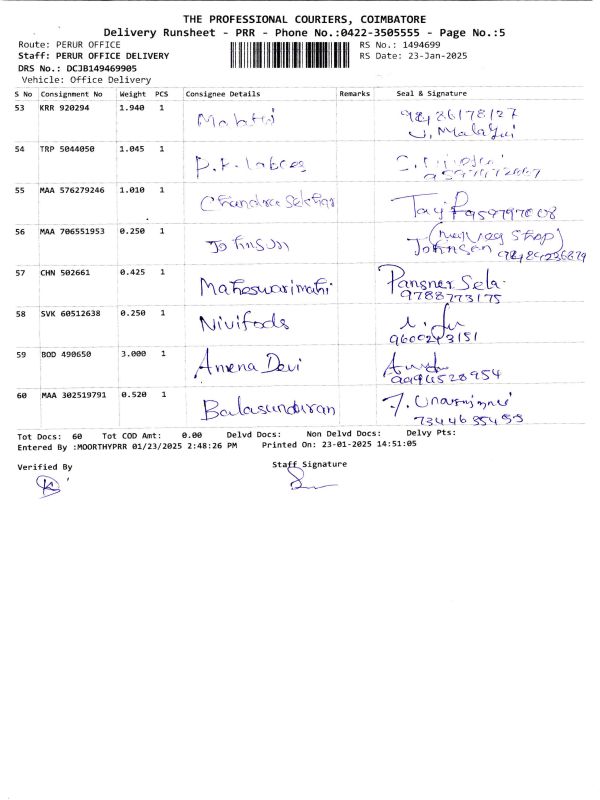 THE PROFESSIONAL COURIERS, COIMBATORE
Delivery Runsheet - PRR - Phone No.:0422-3505555 - Page No.:5
Route: PERUR OFFICE RS No.: 1494699
Staff: PERUR OFFICE DELIVERY RS Date: 23-Jan-2025
DRS No.: DCJB149469905
Vehicle: Office Delivery
S No Consignment No Weight PCS Consignee Details Remarks Seal & Signature
53 KRR 920294 1.940 1 Malathi
54 TRP 5044050 1.045 1
55 MAA 576279246 1.010 1 Chandra Sekhar
56 MAA 706551953 0.250 1 Johnson
Johnson
57 CHN 502661 0.425 1 Maheswarimahi
9788773175
58 SVK 60512638 0.250 1 Nivifods
59 BOD 490650 3.000 1 Amena Devi
60 MAA 302519791 0.520 1 Balasundaran
Tot Docs: 60 Tot COD Amt: 0.00 Delvd Docs: Non Delvd Docs: Delvy Pts:
Entered By :MOORTHYPRR 01/23/2025 2:48:26 PM Printed On: 23-01-2025 14:51:05
Verified By Staff Signature